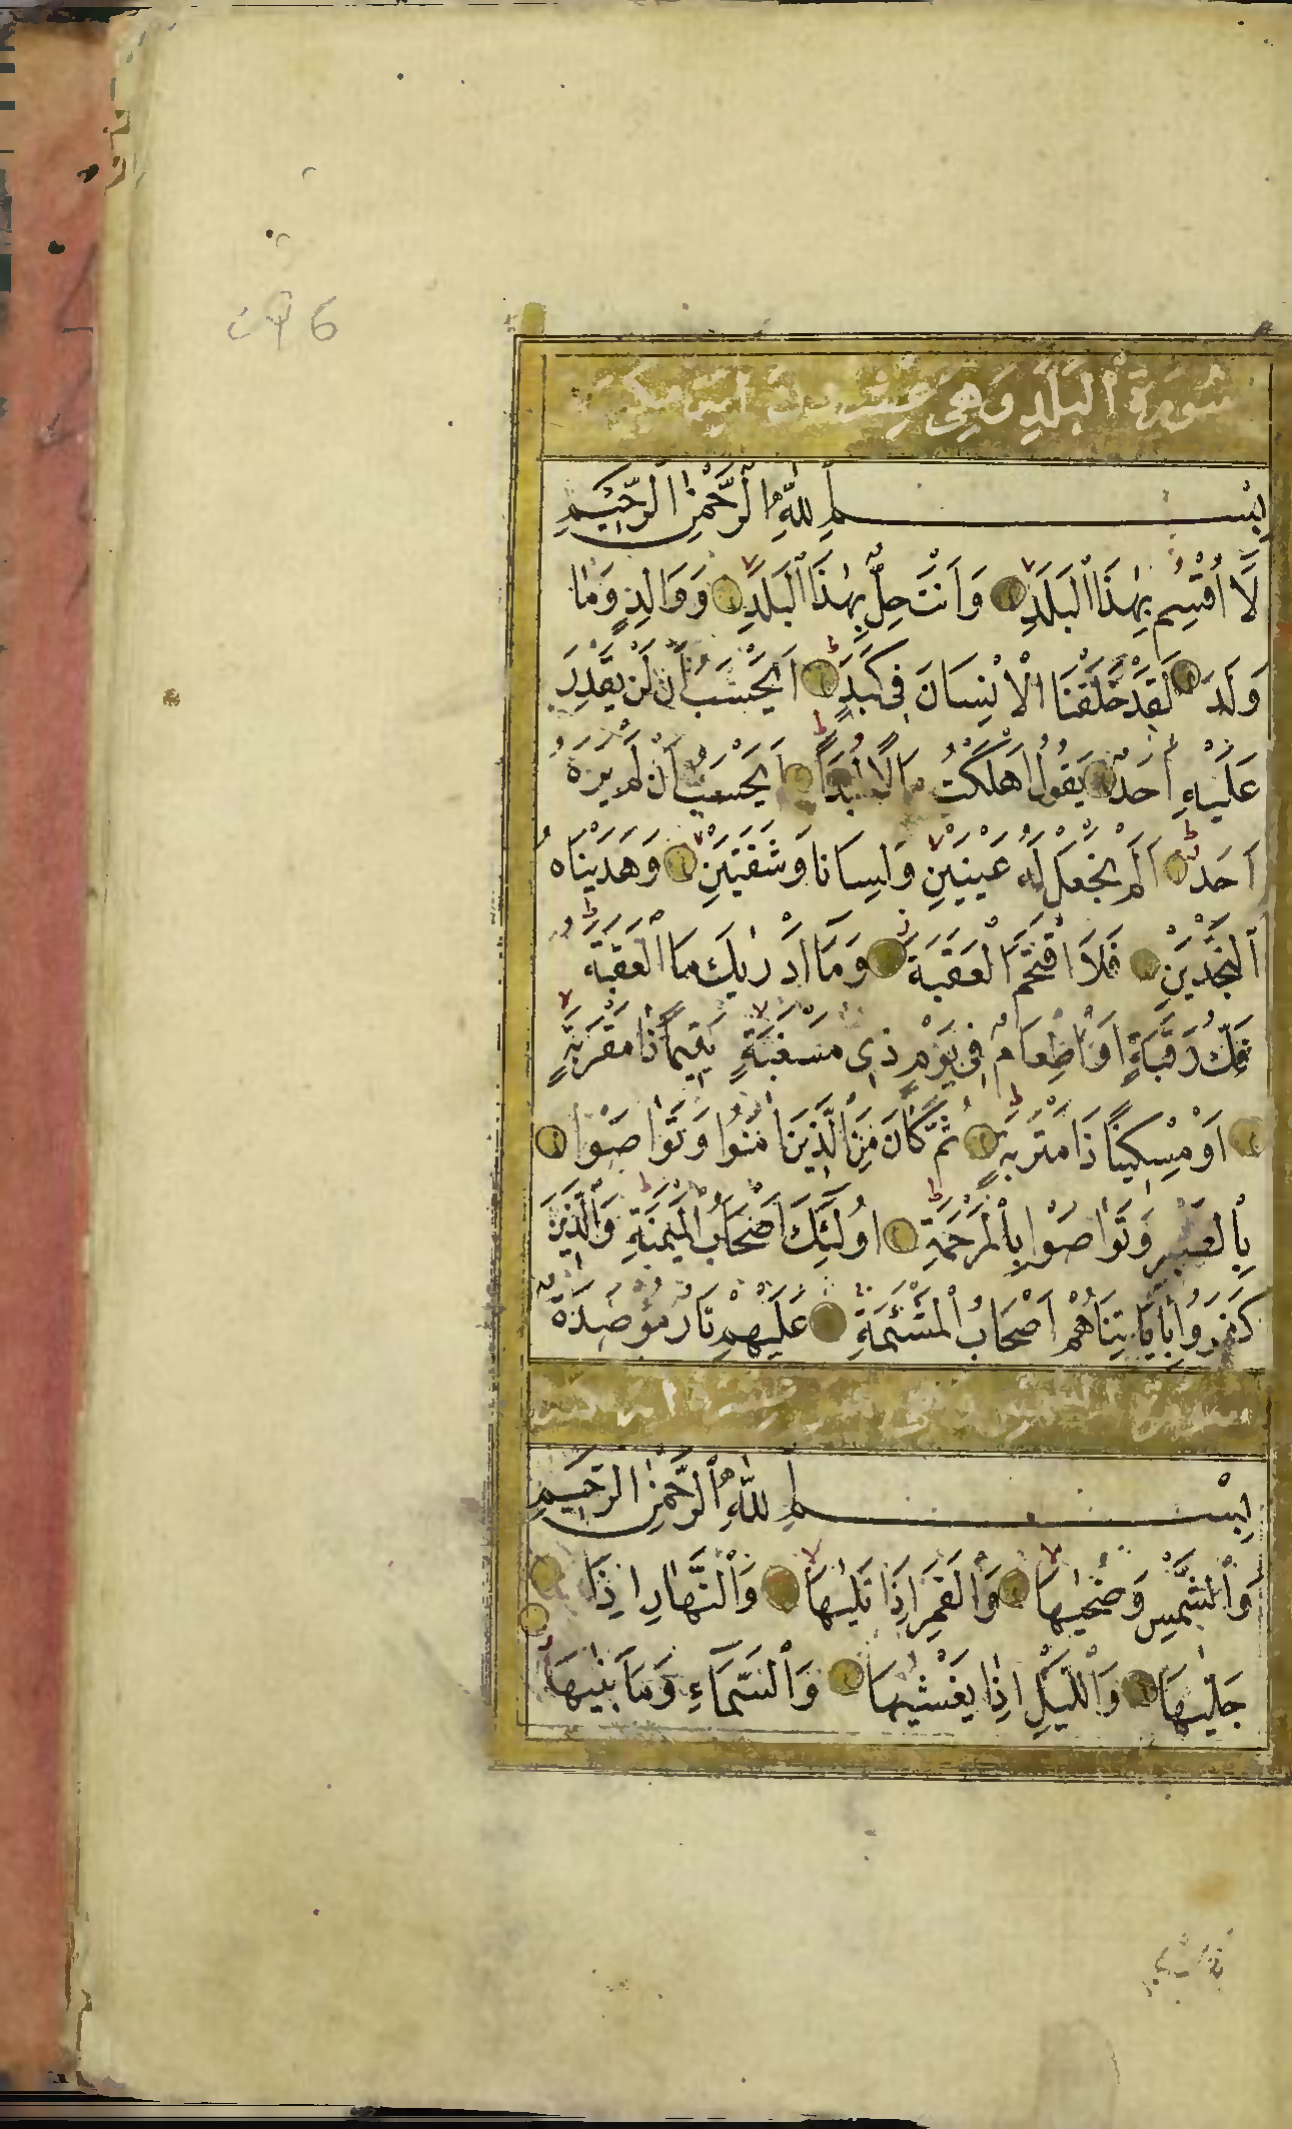 سُورَةُ ٱلْبَلَدِ وَهِيَ عِشْرُونَ
بِسْمِ ٱللّٰهِ ٱلرَّحْمٰنِ ٱلرَّحِيمِ
لَآ اُقْسِمُ بِهٰذَا ٱلْبَلَدِ وَاَنْتَ حِلٌّ بِهٰذَا ٱلْبَلَدِ وَوَالِدٍ وَمَا
وَلَدَ لَقَدْ خَلَقْنَا ٱلْاِنْسَانَ فِى كَبَدٍ اَيَحْسَبُ اَنْ لَنْ يَقْدِرَ
عَلَيْهِ اَحَدٌ يَقُولُ اَهْلَكْتُ مَالًا لُبَدًا اَيَحْسَبُ اَنْ لَمْ يَرَهُ
اَحَدٌ اَلَمْ نَجْعَلْ لَهُ عَيْنَيْنِ وَلِسَانًا وَشَفَتَيْنِ وَهَدَيْنَاهُ
ٱلنَّجْدَيْنِ فَلَا ٱقْتَحَمَ ٱلْعَقَبَةَ وَمَآ اَدْرٰيكَ مَا ٱلْعَقَبَةُ
فَكُّ رَقَبَةٍ اَوْ اِطْعَامٌ فِى يَوْمٍ ذِى مَسْغَبَةٍ يَتِيمًا ذَا مَقْرَبَةٍ
اَوْ مِسْكِينًا ذَا مَتْرَبَةٍ ثُمَّ كَانَ مِنَ ٱلَّذِينَ اٰمَنُوا وَتَوَاصَوْا
بِٱلصَّبْرِ وَتَوَاصَوْا بِٱلْمَرْحَمَةِ اُولٰٓئِكَ اَصْحَابُ ٱلْمَيْمَنَةِ وَٱلَّذِينَ
كَفَرُوا بِاٰيَاتِنَا هُمْ اَصْحَابُ ٱلْمَشْـَٔمَةِ عَلَيْهِمْ نَارٌ مُؤْصَدَةٌ
بِسْمِ ٱللّٰهِ ٱلرَّحْمٰنِ ٱلرَّحِيمِ
وَٱلشَّمْسِ وَضُحٰيهَا وَٱلْقَمَرِ اِذَا تَلٰيهَا وَٱلنَّهَارِ اِذَا
جَلّٰيهَا وَٱللَّيْلِ اِذَا يَغْشٰيهَا وَٱلسَّمَآءِ وَمَا بَنٰيهَا